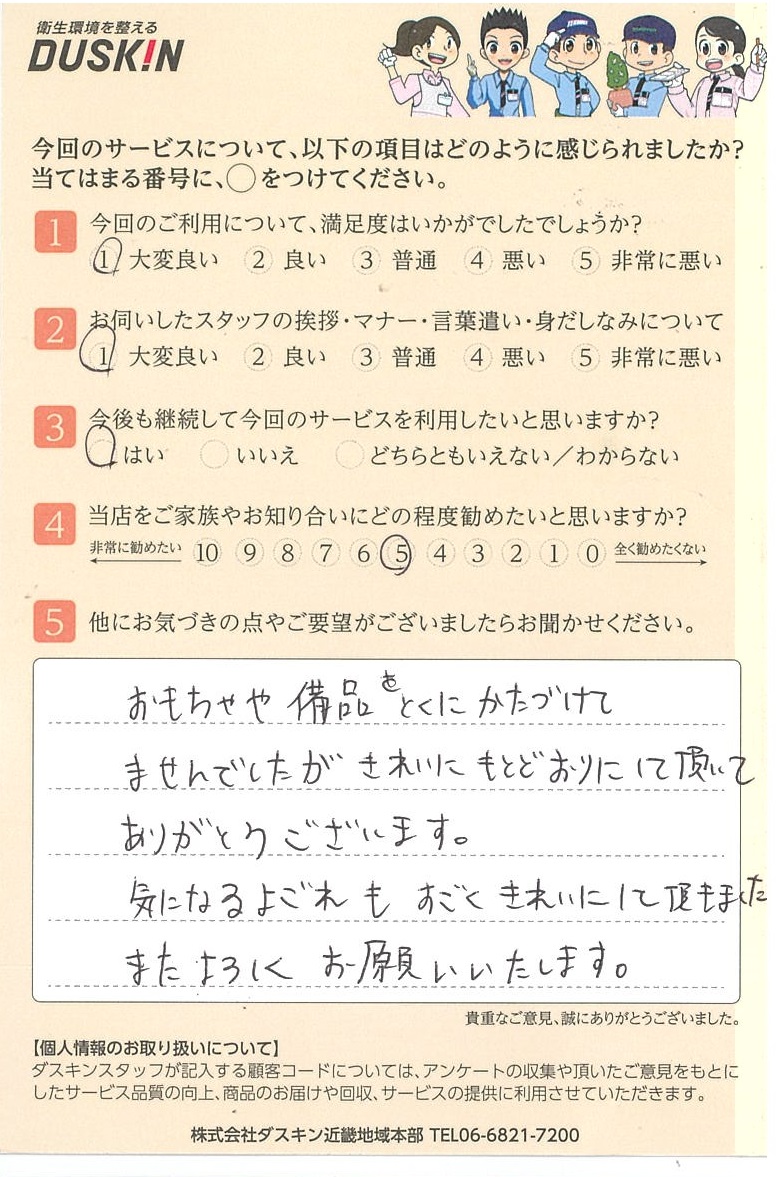 衛生環境を整える
DUSKIN
今回のサービスについて、以下の項目はどのように感じられましたか?
当てはまる番号に、◯をつけてください。
1 今回のご利用について、満足度はいかがでしたでしょうか?
1 大変良い 2 良い 3 普通 4 悪い 5 非常に悪い
2 お伺いしたスタッフの挨拶・マナー・言葉遣い・身だしなみについて
1 大変良い 2 良い 3 普通 4 悪い 5 非常に悪い
3 今後も継続して今回のサービスを利用したいと思いますか?
はい いいえ どちらともいえない/わからない
4 当店をご家族やお知り合いにどの程度勧めたいと思いますか?
非常に勧めたい 10 9 8 7 6 5 4 3 2 1 0 全く勧めたくない
5 他にお気づきの点やご要望がございましたらお聞かせください。
おもちゃや備品をとくにかたづけて
ませんでしたが きれいに もとどおりにして頂いて
ありがとうございます。
気になるよごれも すごく きれいにして頂きました
また よろしく お願いいたします。
貴重なご意見、誠にありがとうございました。
【個人情報のお取り扱いについて】
ダスキンスタッフが記入する顧客コードについては、アンケートの収集や頂いたご意見をもとに
したサービス品質の向上、商品のお届けや回収、サービスの提供に利用させていただきます。
株式会社ダスキン近畿地域本部 TEL06-6821-7200